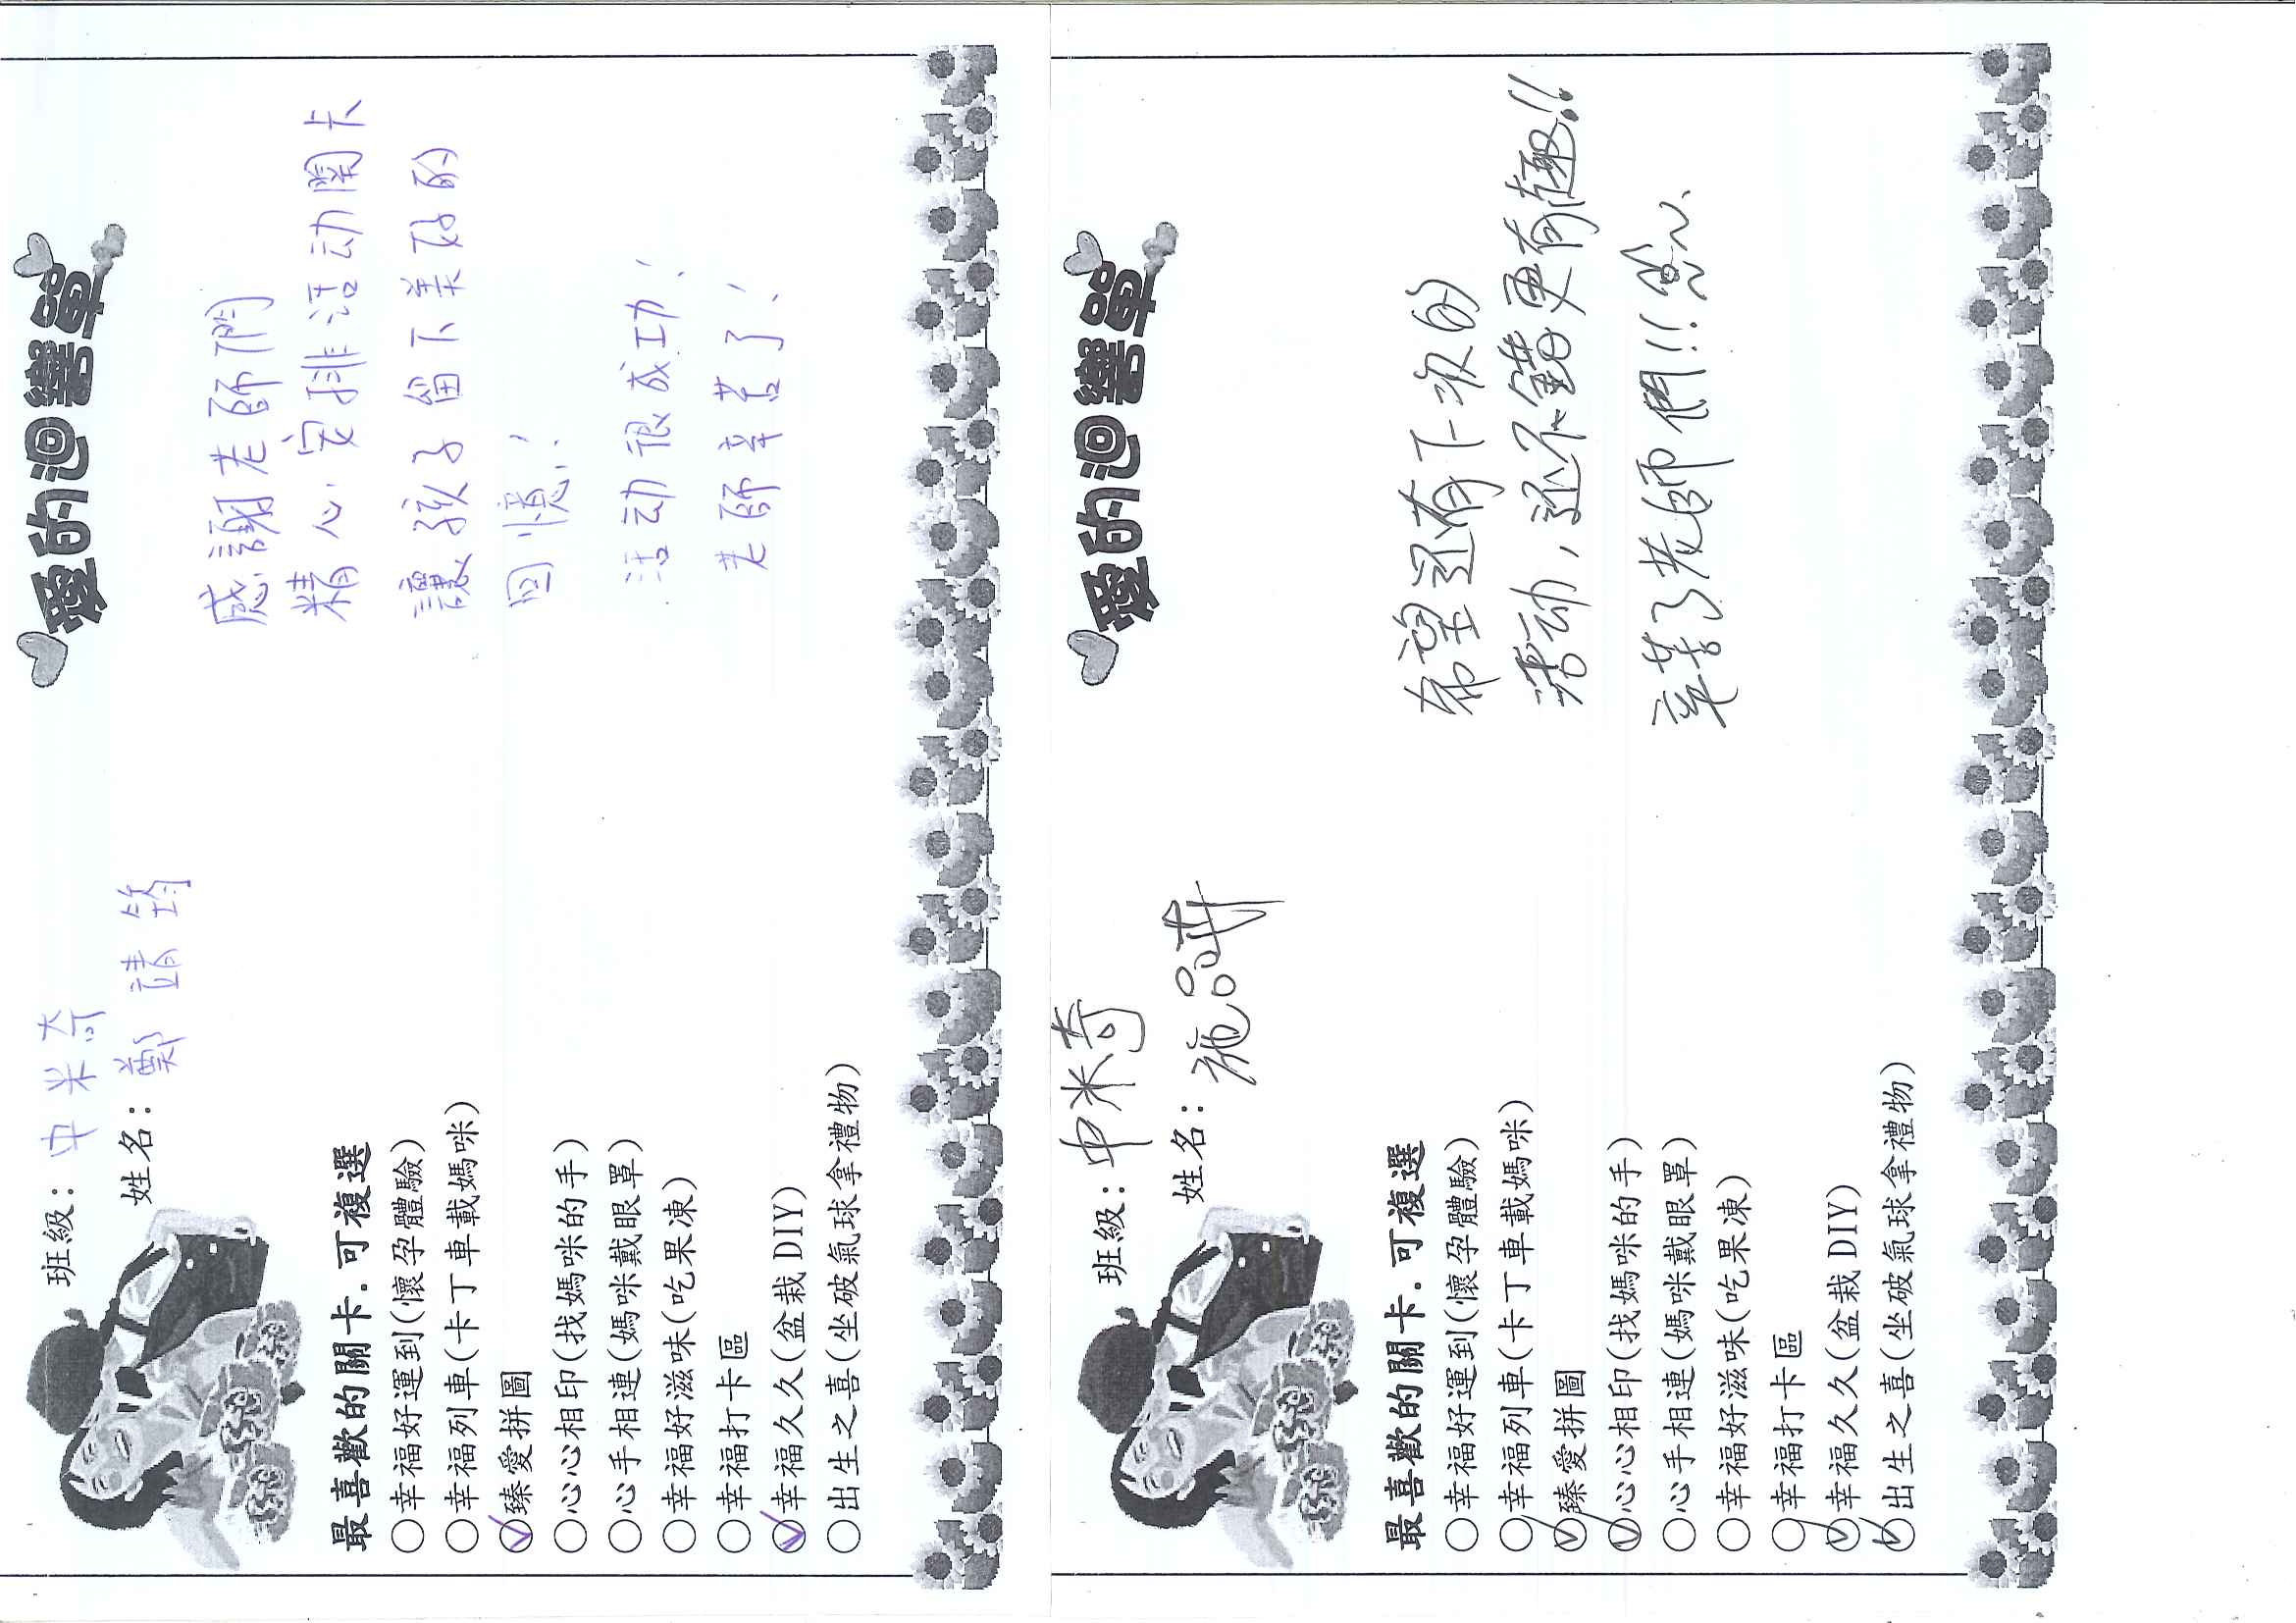 愛的迴響單
班級：中米奇
姓名：鄭靖筠
感謝老師們
精心安排活动關卡
讓孩子留下美好的
回憶！
活动很成功！
老師辛苦了！
最喜歡的關卡.可複選
○幸福好運到(懷孕體驗)
○幸福列車(卡丁車載媽咪)
○臻愛拼圖
○心心相印(找媽咪的手)
○心手相連(媽咪戴眼罩)
○幸福好滋味(吃果凍)
○幸福打卡區
○幸福久久(盆栽DIY)
○出生之喜(坐破氣球拿禮物)
愛的迴響單
班級：中米奇
姓名：施品
希望还有下次的
活动，还不錯更有趣!!
辛苦了老師們!!
最喜歡的關卡.可複選
○幸福好運到(懷孕體驗)
○幸福列車(卡丁車載媽咪)
○臻愛拼圖
○心心相印(找媽咪的手)
○心手相連(媽咪戴眼罩)
○幸福好滋味(吃果凍)
○幸福打卡區
○幸福久久(盆栽DIY)
○出生之喜(坐破氣球拿禮物)